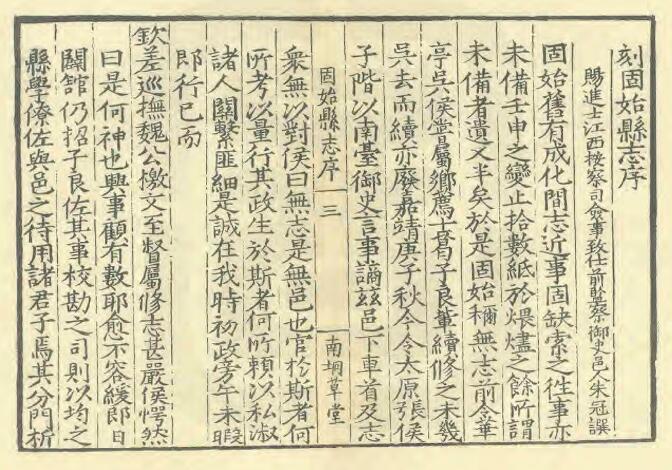 刻固始縣志序
賜進士江西按察司僉事致仕前監察御史邑人朱冠譔
固始舊有成化間志近事固缺索之徃事亦
未備壬申之變止拾數紙於煨燼之餘所謂
未備者遺又半矣於是固始稱無志前令華
亭吳侯嘗屬鄉薦士胥子良輩續修之未幾
吳去而續亦廢嘉靖庚子秋今令太原張侯
子階以南臺御史言事謫玆邑下車首及志
固始縣志序
三
南垌草堂
衆無以對侯曰無志是無邑也官於斯者何
所考以量行其政生於斯者何所賴以私淑
諸人關繫匪細是誠在我時初政旁午未暇
即行已而
欽差巡撫魏公檄文至督屬修志甚嚴侯愕然
曰是何神也興事顧有數耶愈不容緩即日
闢館仍招子良佐其事校勘之司則以均之
縣學僚佐與邑之待用諸君子焉其分門析